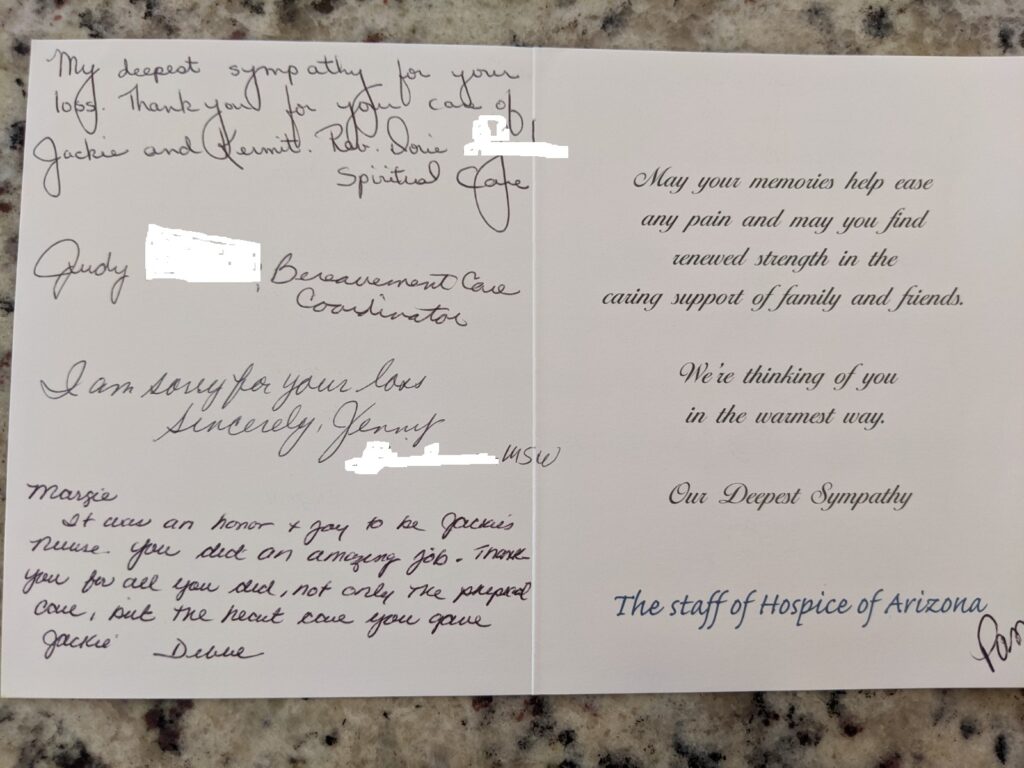 My deepest sympathy for your
loss. Thank you for your care of
Jackie and Kermit. Rev. Dorie
Spiritual Care
Judy , Bereavement Care
Coordinator
I am sorry for your loss
Sincerely, Jenny
MSW
Margie
It was an honor + joy to be Jackie's
nurse. You did an amazing job. Thank
you for all you did, not only the physical
care, but the heart care you gave
Jackie
May your memories help ease
any pain and may you find
renewed strength in the
caring support of family and friends.
We're thinking of you
in the warmest way.
Our Deepest Sympathy
The staff of Hospice of Arizona